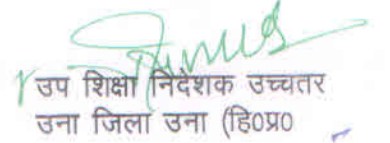 उप शिक्षा निदेशक उच्चतर
उना जिला उना (हि0प्र0